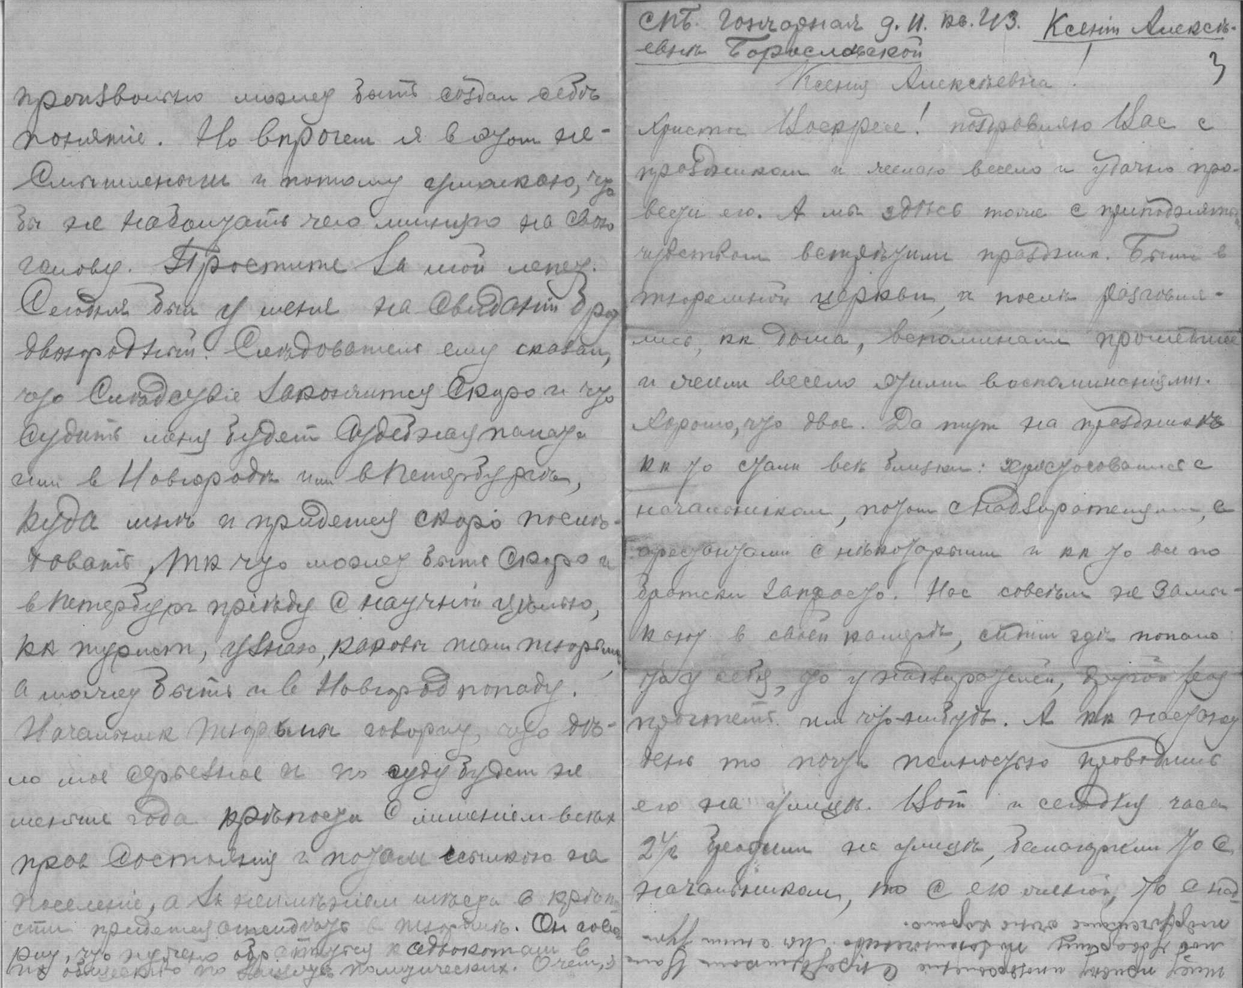 произвольно может быть создам себѣ
понятіе. Но впрочем я в этом не-
смышленыш и потому умолкаю, что
бы не наболтать чего лишнего на свою
голову. Простите за мой лепет.
Сегодня был у меня на свиданіи брат
двоюродный. Слѣдователь ему сказал,
что слѣдствіе закончится скоро и что
судить меня будет судебная палата
или в Новгородѣ или в Петербургѣ,
куда мнѣ и придется скоро послѣ-
довать, тк что может быть скоро и
в Петербург пріѣду с научной цѣлью,
кк турист, узнаю, каковы там тюрьмы,
а может быть и в Новгород попаду.
Начальник тюрьмы говорит, что дѣ-
ло мое серьезное и по суду будет не
меньше года крѣпости с лишеніем всѣх
прав состоянія и потом ссылкою на
поселеніе, а за неимѣніем мѣста в крѣпо-
сти придется отсиживать в тюрьмѣ. Он гово-
рит, что нужно обратиться к адвокатам в
их общество по защитѣ политических. Очень
СПБ. Гончарная д. 11. кв. 43. Ксеніи Алексѣ-
евнѣ Бориславской
3
Ксения Алексѣевна!
Христос Воскресе! поздравляю Вас с
праздником и желаю весело и удачно про-
вести его. А мы здѣсь тоже с приподнятым
чувством встрѣтили праздник. Были в
тюремной церкви, и послѣ разговля-
лись, кк дома, вспоминали прошедшее
и жили весело этими воспоминаніями.
Хорошо, что двое. Да тут на праздниках
кк то стали всѣ близки: христосовался с
начальником, потом с надзирателями, с
арестантами с нѣкоторыми и кк то все по
братски запросто. Нас совсѣм не замы-
кают в своей камерѣ, сидим гдѣ попало:
то у себя, то у надзирателей, другой раз
прочтешь им что-нибудь. А кк настанет
день то почти полностью проводишь
его на улицѣ. Вот и сегодня часа
2½ бродили на улицѣ, балагурили то с
начальником, то с его женой, то с над-